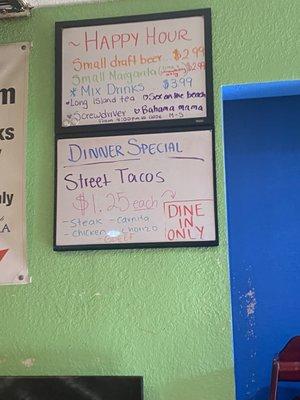 ~ HAPPY HOUR
Small draft beer $2.99
Small Margarita $2.99
* MIX Drinks $3.99
Long Island tea Sex on the beach
Screwdriver Bahama mama
DINNER SPECIAL
Street Tacos
$1.25 each
DINE
IN
ONLY
- Steak - Carnita
- Chicken - Chorizo